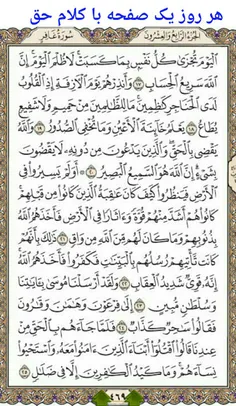 هر روز یک صفحه با کلام حق
الجزء الرابع والعشرون
سورة غافر
ٱلۡيَوۡمَ تُجۡزَىٰ كُلُّ نَفۡسِۭ بِمَا كَسَبَتۡۚ لَا ظُلۡمَ ٱلۡيَوۡمَۚ إِنَّ
ٱللَّهَ سَرِيعُ ٱلۡحِسَابِ ١٧ وَأَنذِرۡهُمۡ يَوۡمَ ٱلۡأٓزِفَةِ إِذِ ٱلۡقُلُوبُ
لَدَى ٱلۡحَنَاجِرِ كَٰظِمِينَۚ مَا لِلظَّٰلِمِينَ مِنۡ حَمِيمٖ وَلَا شَفِيعٖ
يُطَاعُ ١٨ يَعۡلَمُ خَآئِنَةَ ٱلۡأَعۡيُنِ وَمَا تُخۡفِي ٱلصُّدُورُ ١٩ وَٱللَّهُ
يَقۡضِي بِٱلۡحَقِّۖ وَٱلَّذِينَ يَدۡعُونَ مِن دُونِهِۦ لَا يَقۡضُونَ
بِشَيۡءٍۗ إِنَّ ٱللَّهَ هُوَ ٱلسَّمِيعُ ٱلۡبَصِيرُ ٢٠ أَوَلَمۡ يَسِيرُواْ فِي
ٱلۡأَرۡضِ فَيَنظُرُواْ كَيۡفَ كَانَ عَٰقِبَةُ ٱلَّذِينَ كَانُواْ مِن قَبۡلِهِمۡۚ
كَانُواْ هُمۡ أَشَدَّ مِنۡهُمۡ قُوَّةٗ وَءَاثَارٗا فِي ٱلۡأَرۡضِ فَأَخَذَهُمُ ٱللَّهُ
بِذُنُوبِهِمۡ وَمَا كَانَ لَهُم مِّنَ ٱللَّهِ مِن وَاقٖ ٢١ ذَٰلِكَ بِأَنَّهُمۡ
كَانَت تَّأۡتِيهِمۡ رُسُلُهُم بِٱلۡبَيِّنَٰتِ فَكَفَرُواْ فَأَخَذَهُمُ ٱللَّهُۚ
إِنَّهُۥ قَوِيّٞ شَدِيدُ ٱلۡعِقَابِ ٢٢ وَلَقَدۡ أَرۡسَلۡنَا مُوسَىٰ بِـَٔايَٰتِنَا
وَسُلۡطَٰنٖ مُّبِينٍ ٢٣ إِلَىٰ فِرۡعَوۡنَ وَهَٰمَٰنَ وَقَٰرُونَ
فَقَالُواْ سَٰحِرٞ كَذَّابٞ ٢٤ فَلَمَّا جَآءَهُم بِٱلۡحَقِّ مِنۡ
عِندِنَا قَالُواْ ٱقۡتُلُوٓاْ أَبۡنَآءَ ٱلَّذِينَ ءَامَنُواْ مَعَهُۥ وَٱسۡتَحۡيُواْ
نِسَآءَهُمۡۚ وَمَا كَيۡدُ ٱلۡكَٰفِرِينَ إِلَّا فِي ضَلَٰلٖ ٢٥
٤٦٩